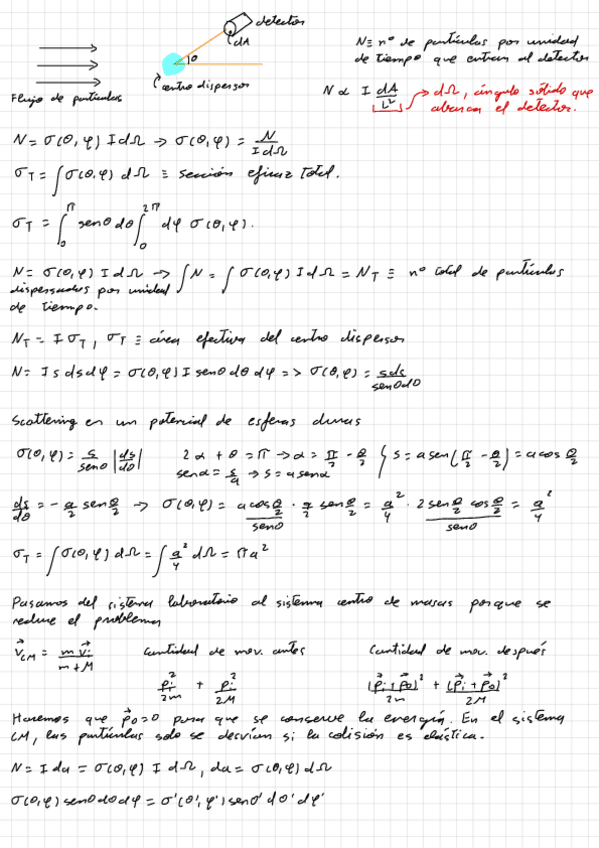 detector
dA
θ
Flujo de partículas
centro dispersor
N ≡ nº de partículas por unidad
de tiempo que entran al detector
N ∝ I dA/L² → dΩ, ángulo sólido que
abarca el detector.
N = σ(θ,φ) I dΩ → σ(θ,φ) = N/(I dΩ)
σ_T = ∫ σ(θ,φ) dΩ ≡ sección eficaz total.
σ_T = ∫₀^π senθ dθ ∫₀^2π dφ σ(θ,φ).
N = σ(θ,φ) I dΩ → ∫ N = ∫ σ(θ,φ) I dΩ = N_T ≡ nº total de partículas
dispersadas por unidad
de tiempo.
N_T = I σ_T, σ_T ≡ área efectiva del centro dispersor
N = I s ds dφ = σ(θ,φ) I senθ dθ dφ => σ(θ,φ) = s ds/(senθ dθ)
Scattering en un potencial de esferas duras
σ(θ,φ) = s/senθ |ds/dθ|
2α + θ = π → α = π/2 - θ/2
senα = s/a → s = a senα
s = a sen(π/2 - θ/2) = a cos θ/2
ds/dθ = -a/2 sen θ/2 → σ(θ,φ) = (a cos θ/2)/senθ · a/2 sen θ/2 = a²/4 · (2 sen θ/2 cos θ/2)/senθ = a²/4
σ_T = ∫ σ(θ,φ) dΩ = ∫ a²/4 dΩ = πa²
Pasamos del sistema laboratorio al sistema centro de masas porque se
reduce el problema
v⃗_CM = m v⃗i/(m + M)
Cantidad de mov. antes
pi²/2m + pi²/2M
Cantidad de mov. después
(p⃗i + p⃗0)²/2m + (p⃗i + p⃗0)²/2M
Haremos que p⃗0 = 0 para que se conserve la energía. En el sistema
CM, las partículas solo se desvían si la colisión es elástica.
N = I da = σ(θ,φ) I dΩ, da = σ(θ,φ) dΩ
σ(θ,φ) senθ dθ dφ = σ'(θ',φ') senθ' dθ' dφ'